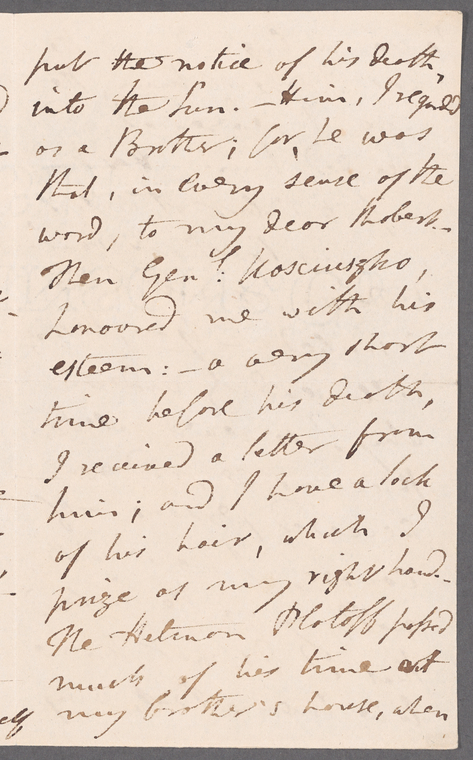 put the notice of his death,
into the Sun. - Him, I regarded
as a Brother; for, he was
that, in every sense of the
word, to my dear Robert. -
Then Genl. Kosciuszko,
honoured me with his
esteem: - a very short
time before his death,
I received a letter from
him; and I have a lock
of his hair, which I
prize as my right hand. -
The Hetman Platoff passed
much of his time at
my brother's house, when